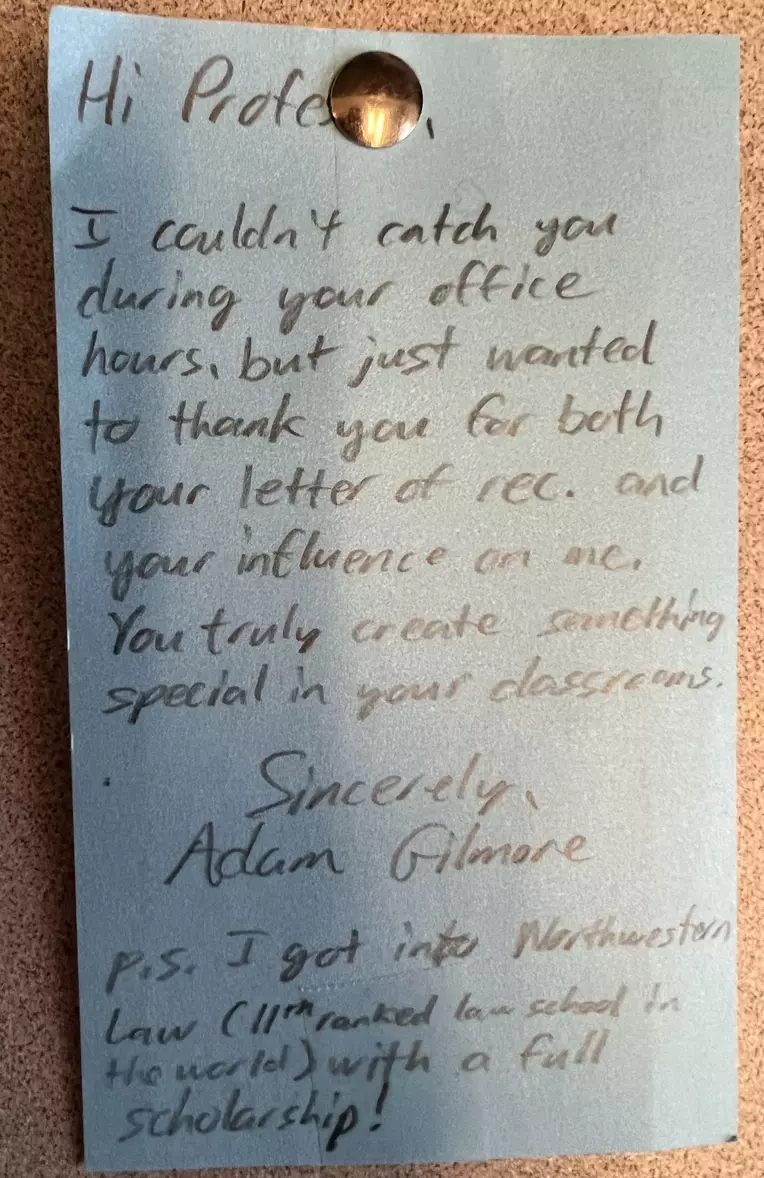 Hi Profes ,
I couldn't catch you
during your office
hours, but just wanted
to thank you for both
your letter of rec. and
your influence on me.
You truly create something
special in your classrooms.
Sincerely,
Adam Gilmore
P.S. I got into Northwestern
Law (11th ranked law school in
the world) with a full
scholarship!